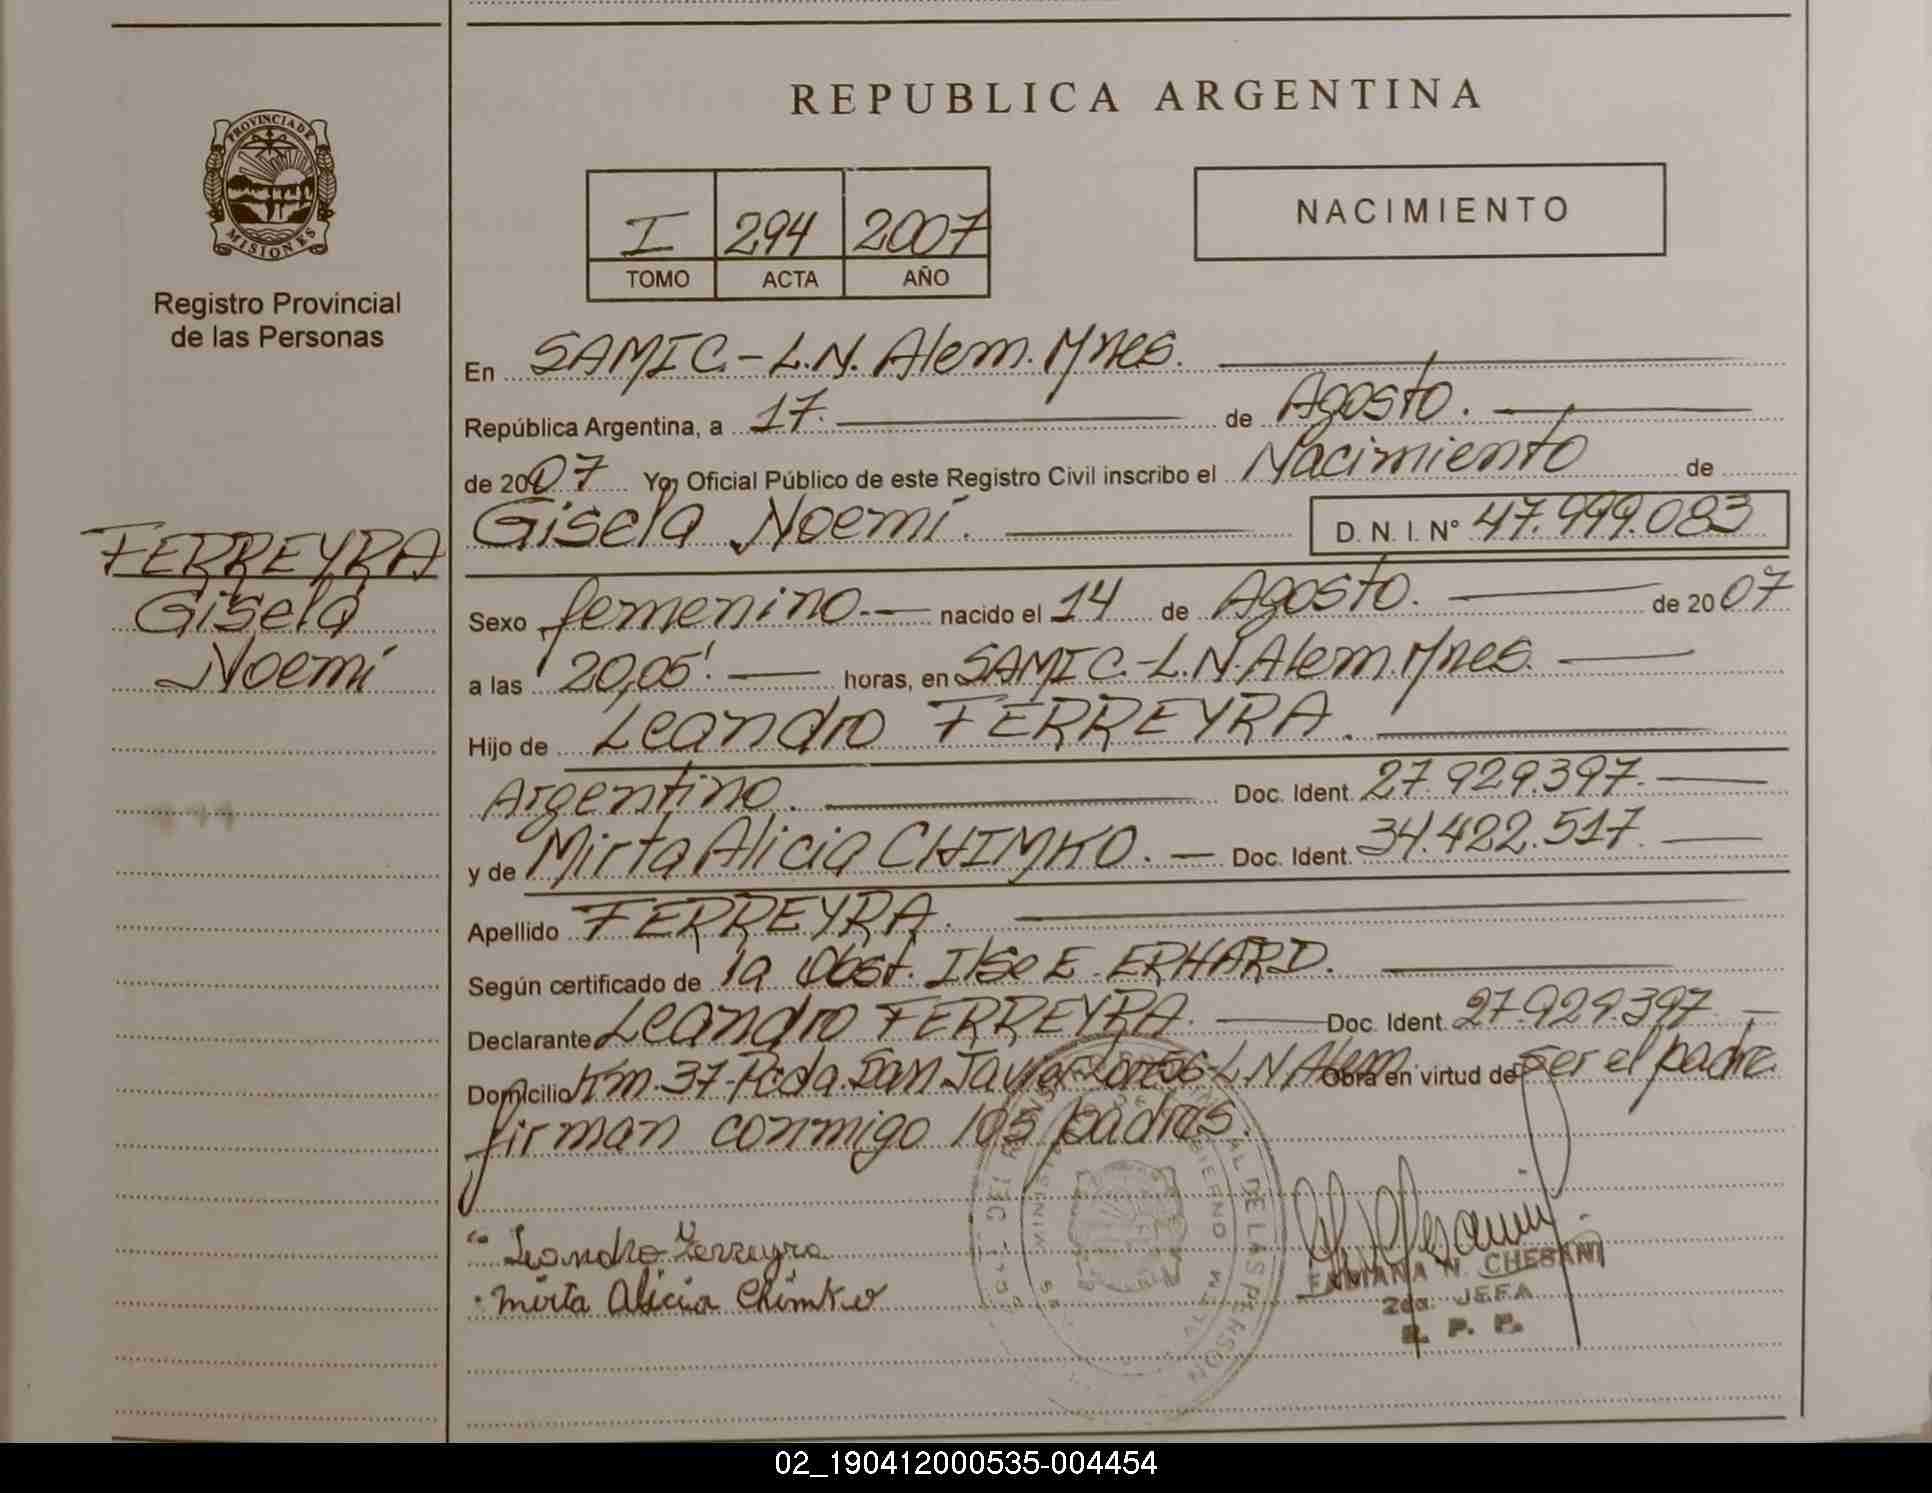 REPUBLICA ARGENTINA
PROVINCIA DE
MISIONES
Registro Provincial
de las Personas
I 294 2007
TOMO ACTA AÑO
NACIMIENTO
En SAMIC.-L.N. Alem. Mnes.
República Argentina, a 17. de Agosto.
de 2007 Yo, Oficial Público de este Registro Civil inscribo el Nacimiento de
Gisela Noemí. D. N. I. N° 47.999.083
FERREYRA
Gisela
Noemí
Sexo femenino.- nacido el 14 de Agosto. de 2007
a las 20,05'. horas, en SAMIC.-L.N. Alem. Mnes.
Hijo de Leandro FERREYRA.
Argentino. Doc. Ident. 27.929.397.
y de Mirta Alicia CHIMKO. Doc. Ident. 34.422.517.
Apellido FERREYRA.
Según certificado de la Obst. Ilse E. ERHARD.
Declarante Leandro FERREYRA. Doc. Ident. 27.929.397
Domicilio Km. 37-Pcda. San Javier L.N Alem Obra en virtud de ser el padre
firman conmigo los padres.
Leandro Ferreyra
Mirta Alicia Chimko
FABIANA N. CHESANI
2da. JEFA
R. P. P.
02_190412000535-004454